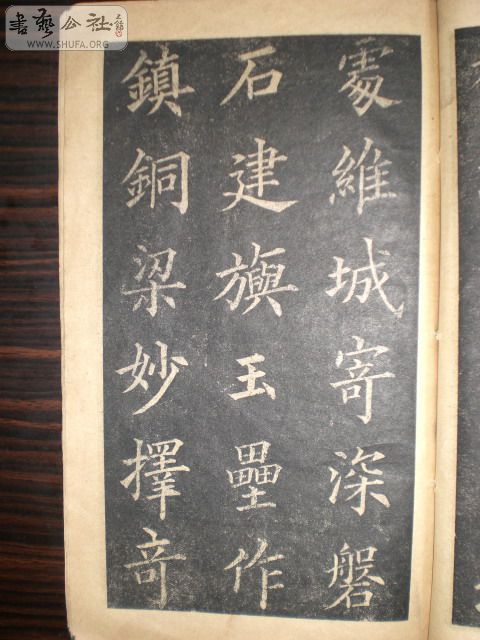 書藝公社
WWW.SHUFA.ORG
處維城寄深磐
石建旟玉壘作
鎮銅梁妙擇竒